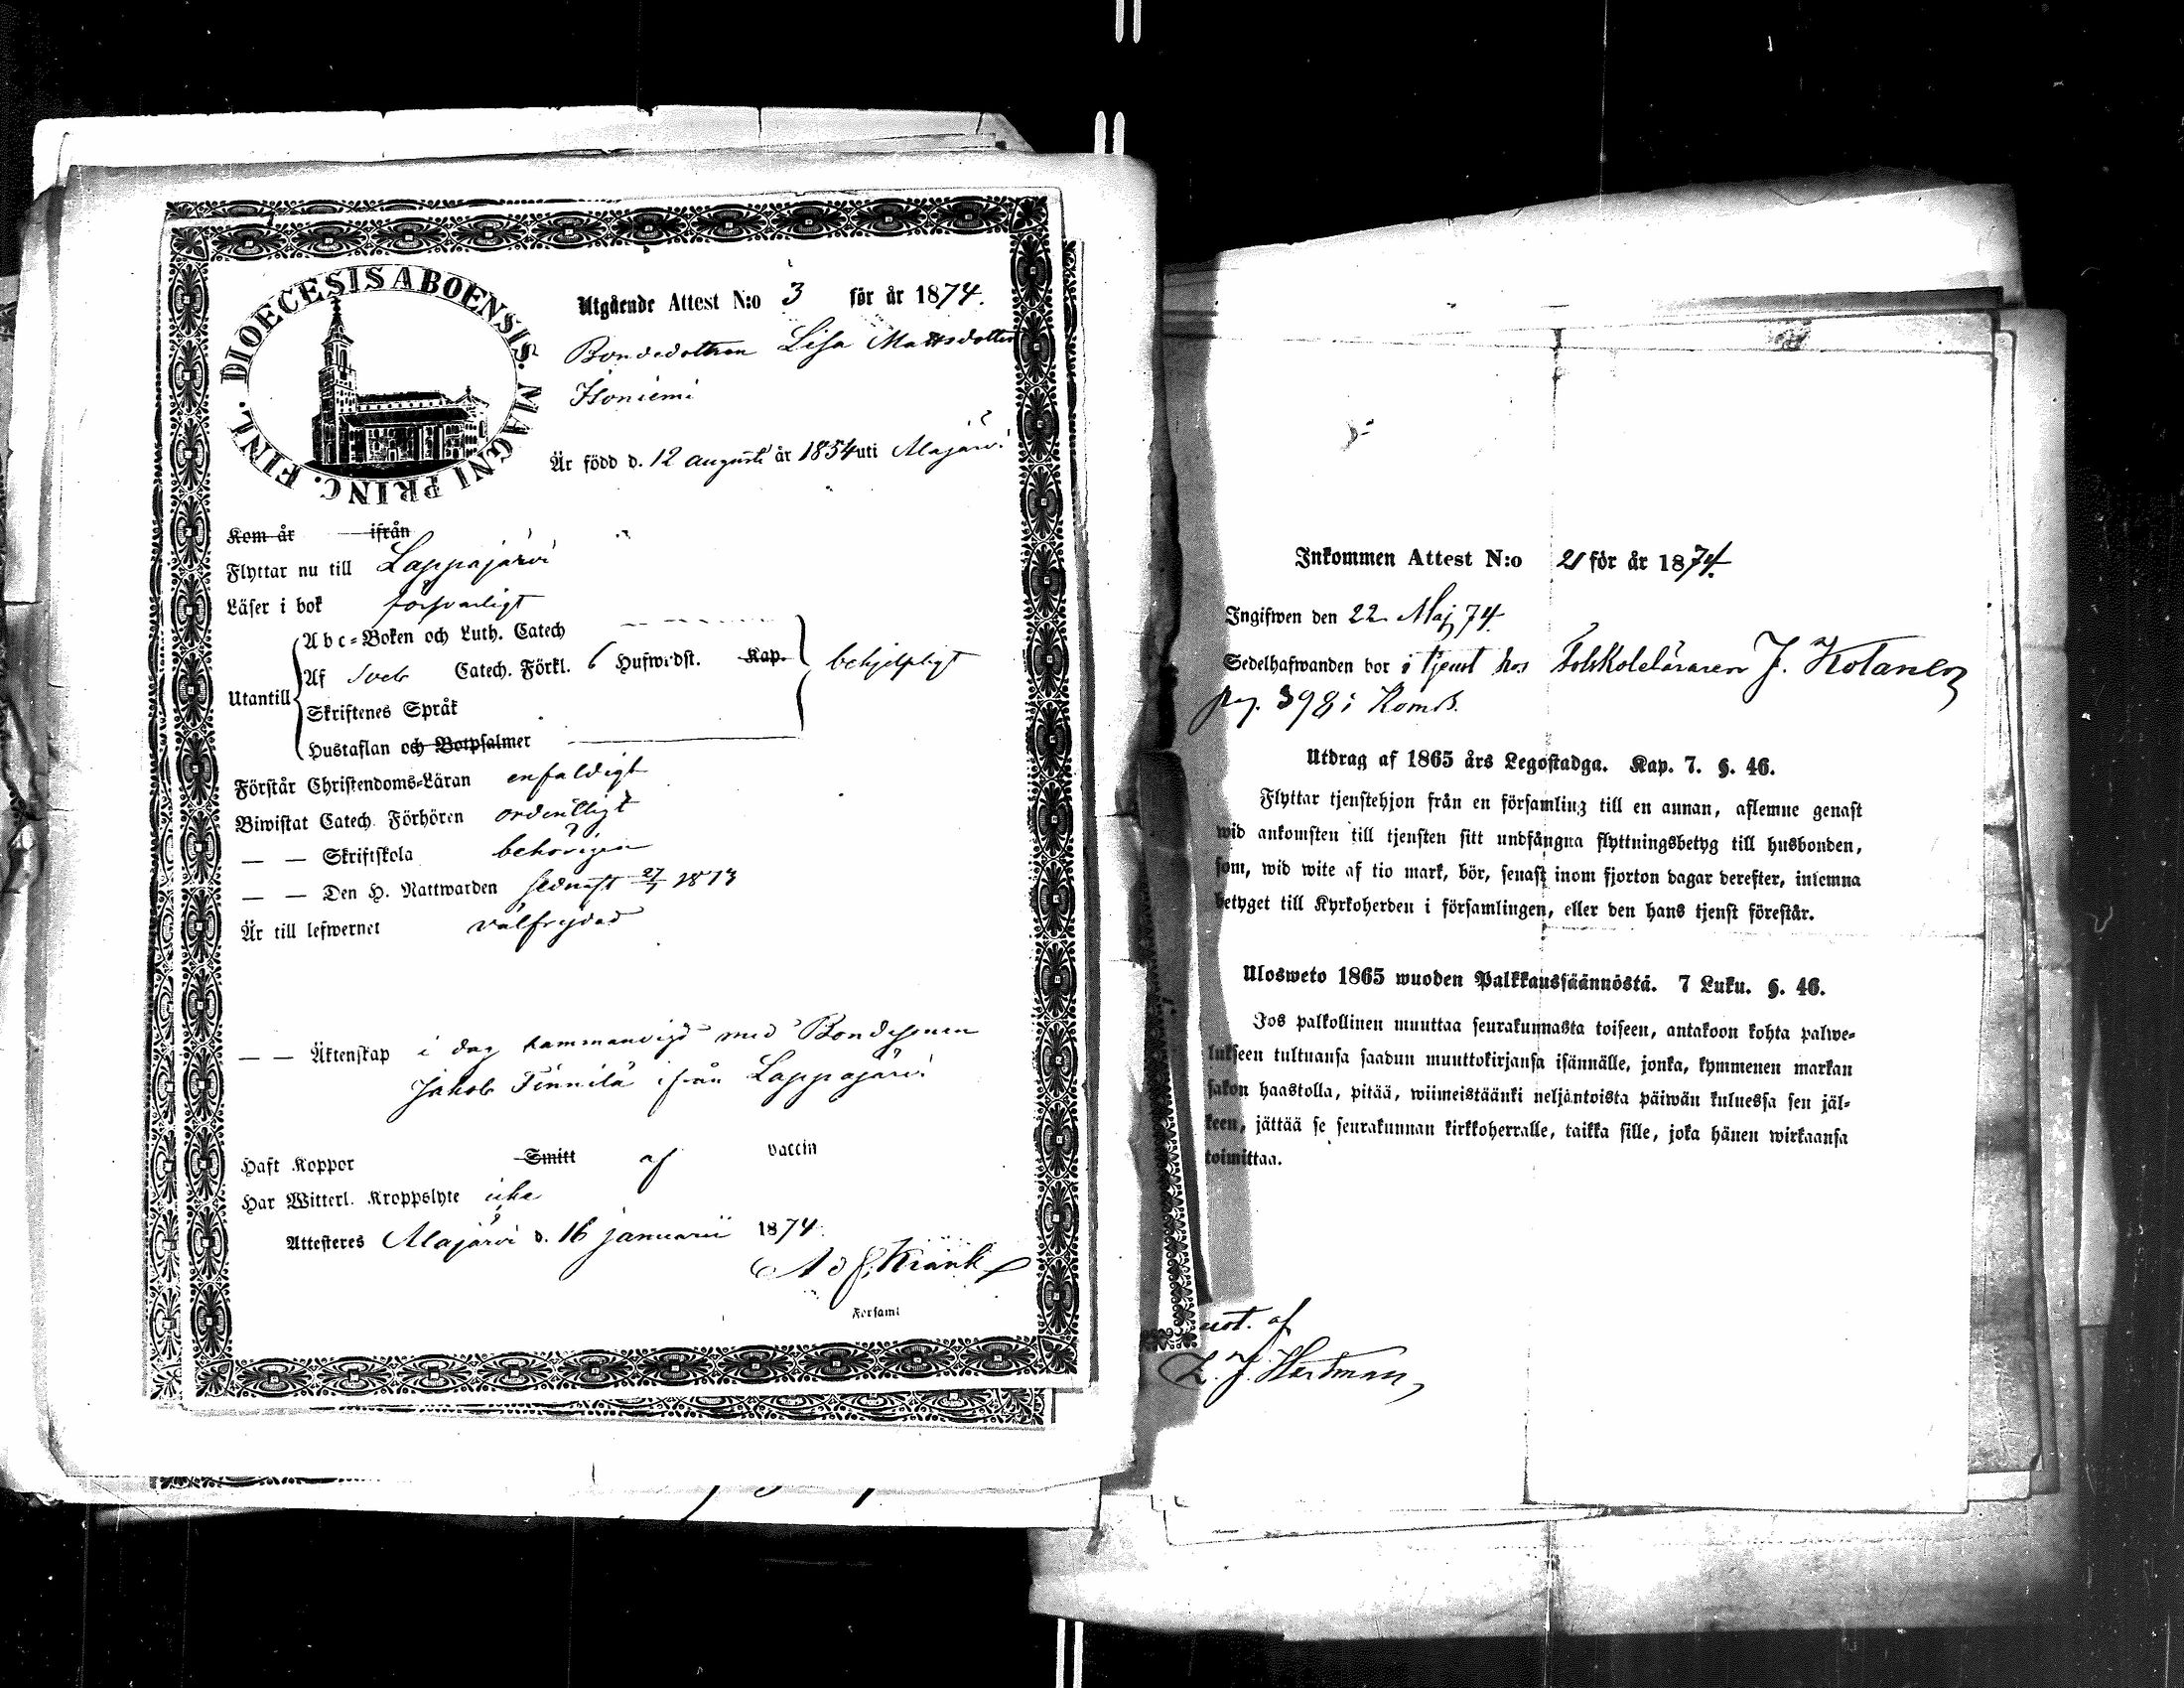 DIOECESIS ABOENSIS. MAGNI PRINC. FINL.
Utgående Attest N:o 3 för år 1874.
Bondedottren Lisa Mattsdotter
Isoniemi
Är född d. 12 augusti år 1854 uti Alajärvi
Kom år — ifrån
Flyttar nu till Lappajärvi
Läser i bok försvarligt
Utantill
Abc-Boken och Luth. Catech — — — —
Af Sveb Catech. Förkl. 6 Hufwdst. Kap.
behjelpligt
Skriftenes Språk
Hustaflan och Botpsalmer
Förstår Christendoms-Läran enfaldigt
Biwistat Catech. Förhören ordentligt
— — Skriftskola behörigen
— — Den H. Nattwarden sednast 27/7 1873
Är till lefwernet välfrejdad
— — Äktenskap i dag sammanvigd med Bondesonen
Jakob Finnilä ifrån Lappajärvi
Haft Koppor Smitt af vaccin
Har Witterl. Kroppslyte icke
Attesteres Alajärvi d. 16 januarii 1874.
Ad. F. Krank
Församl
Inkommen Attest N:o 21 för år 1874.
Ingifwen den 22 Maj 74.
Sedelhafwanden bor i tjenst hos Folkskoleläraren J. Kotanen
pag. 398 i Komb.
Utdrag af 1865 års Legostadga. Kap. 7. §. 46.
Flyttar tjenstehjon från en församling till en annan, aflemne genast
wid ankomsten till tjensten sitt undfångna flyttningsbetyg till husbonden,
som, wid wite af tio mark, bör, senast inom fjorton dagar derefter, inlemna
betyget till Kyrkoherden i församlingen, eller den hans tjenst förestår.
Ulosweto 1865 wuoden Palkkaussäännöstä. 7 Luku. §. 46.
Jos palkollinen muuttaa seurakunnasta toiseen, antakoon kohta palwe-
lukseen tultuansa saadun muuttokirjansa isännälle, jonka, kymmenen markan
sakon haastolla, pitää, wiimeistäänki neljäntoista päiwän kuluessa sen jäl-
keen, jättää se seurakunnan kirkkoherralle, taikka sille, joka hänen wirkaansa
toimittaa.
not. af
K. J. Hartman